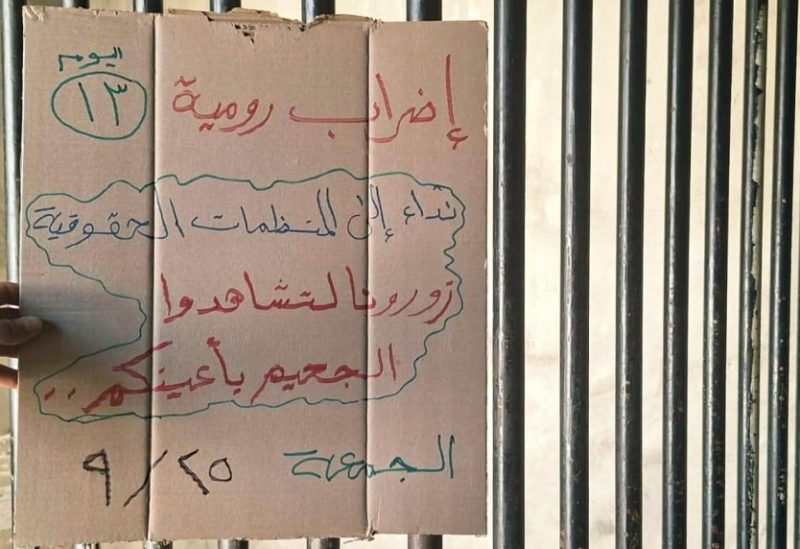 اليوم
١٣
إضراب رومية
نداء إلى المنظمات الحقوقية
زورونا لتشاهدوا
الجحيم بأعينكم..
الجمعة ٢٥/٩